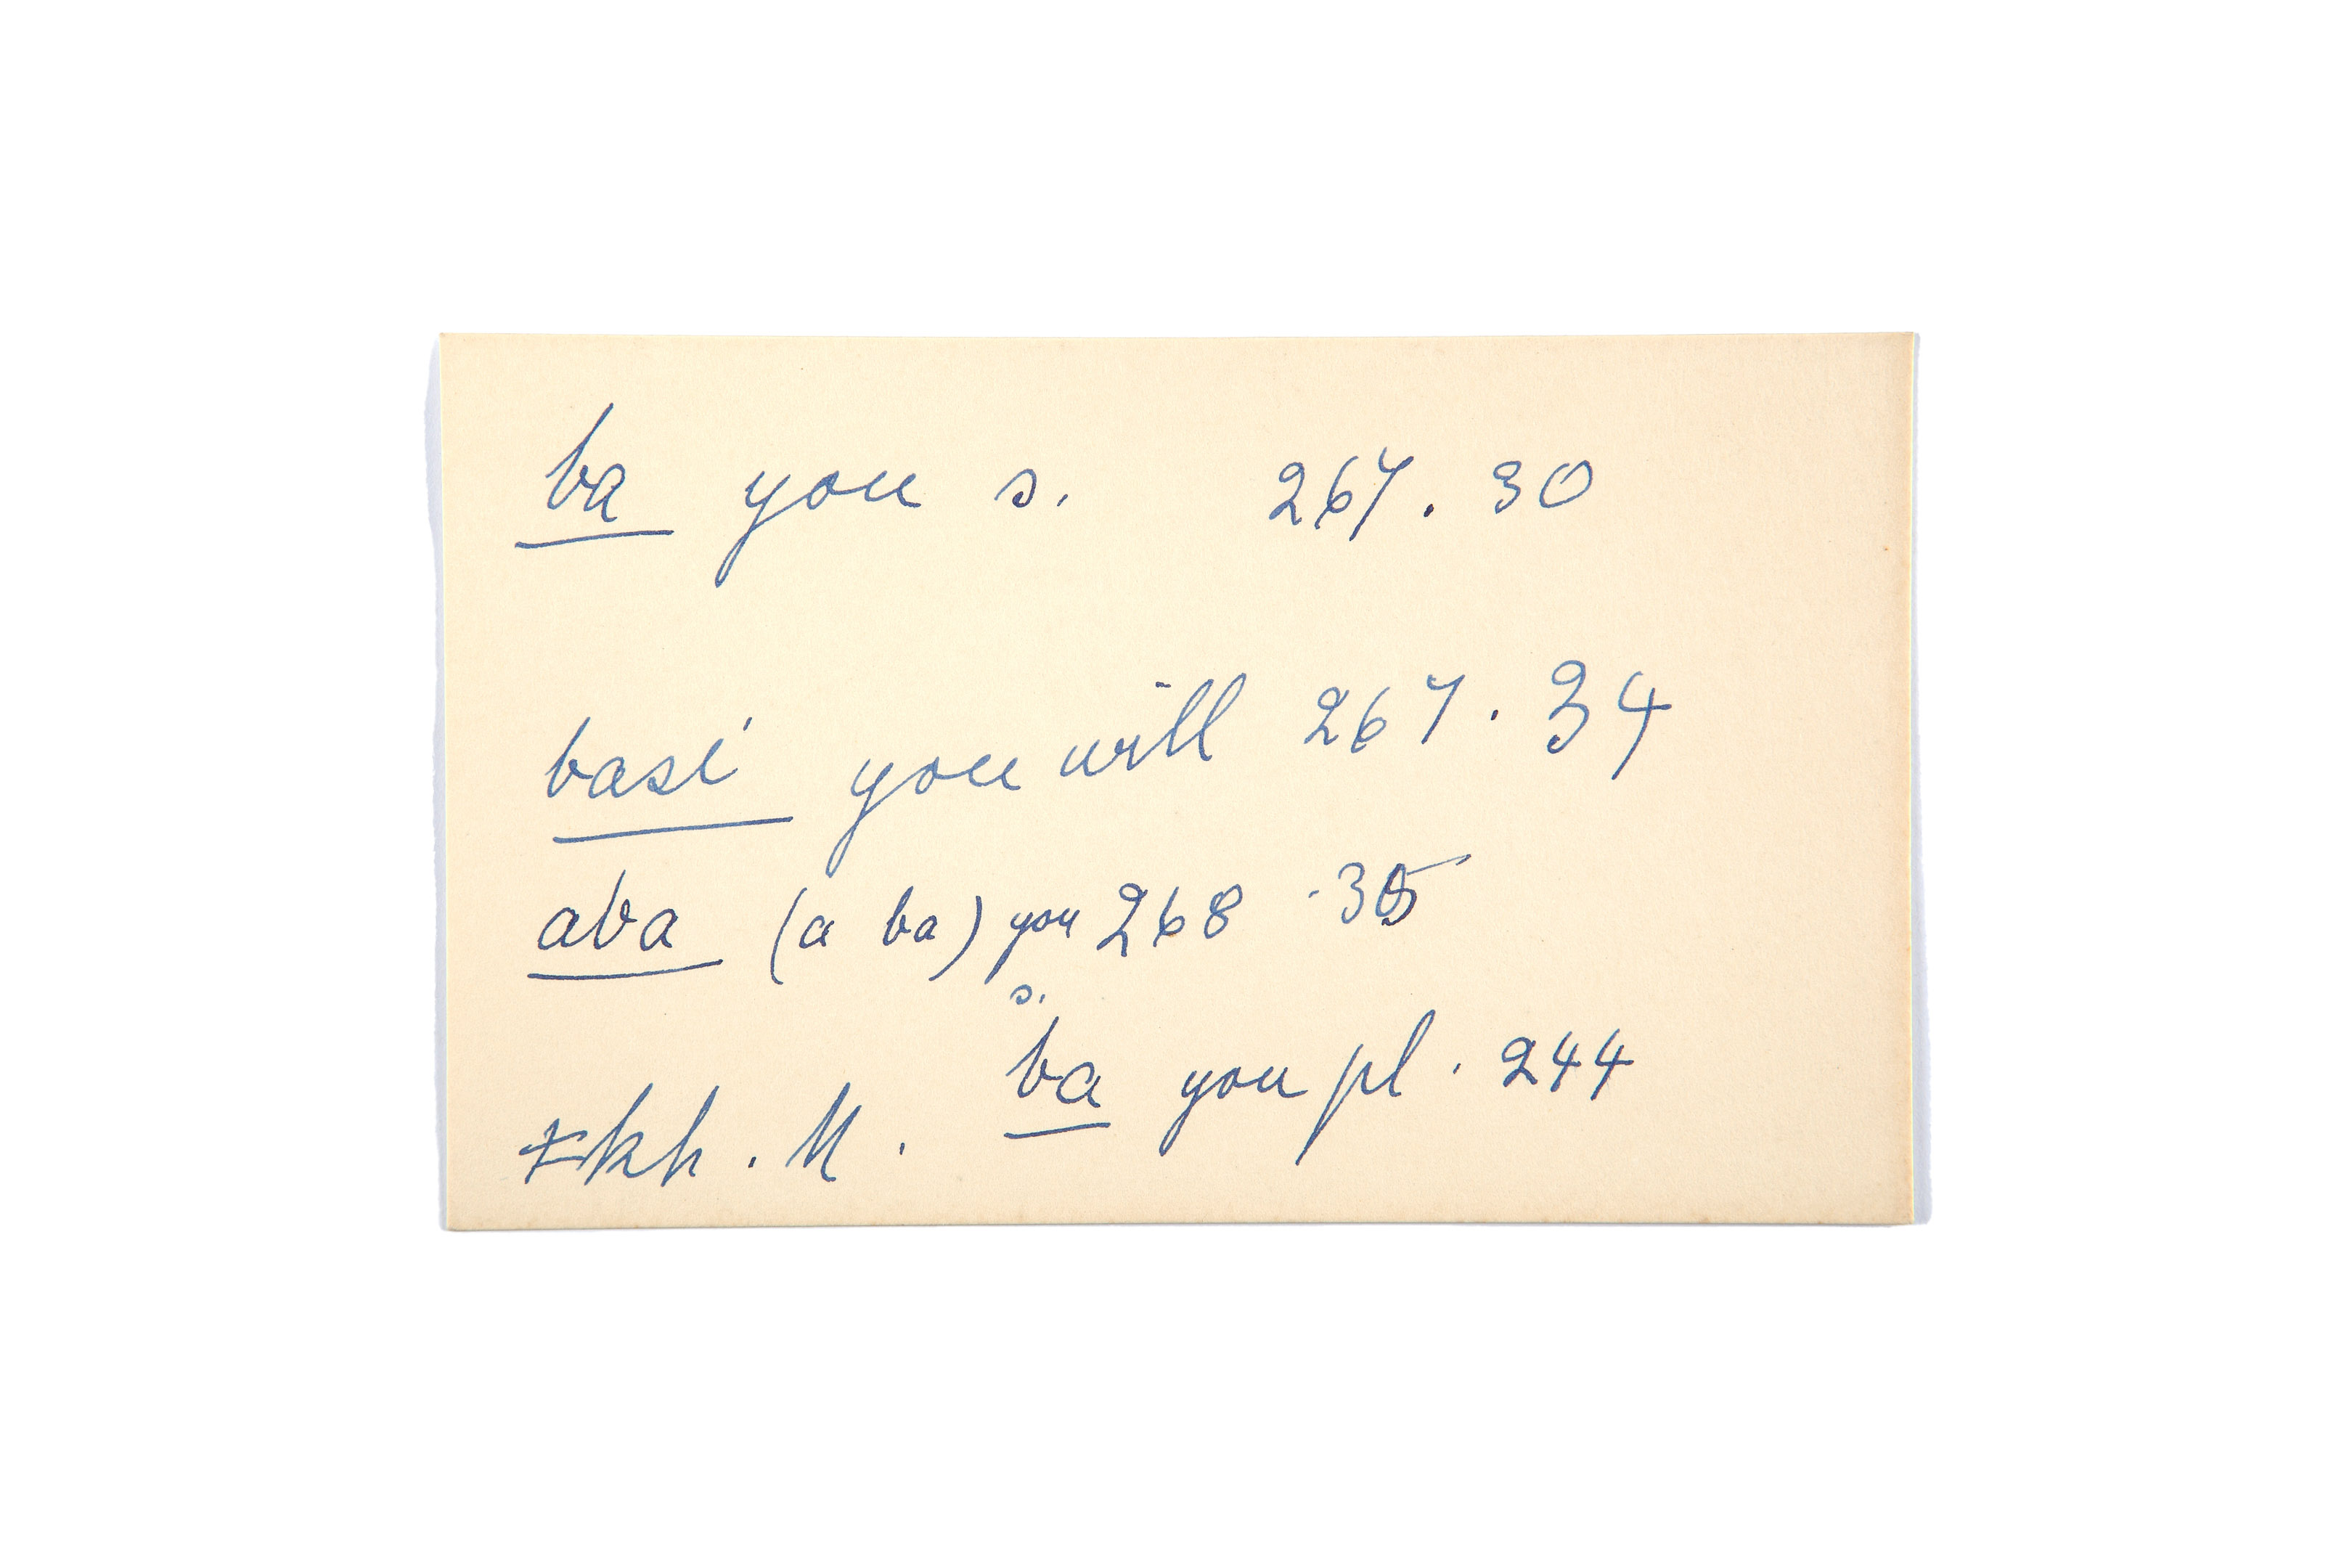 ba you s. 267. 30
basi you will 267. 34
aba (a ba) you 268 .35
s.
ba you pl. 244
ǂkh. M.